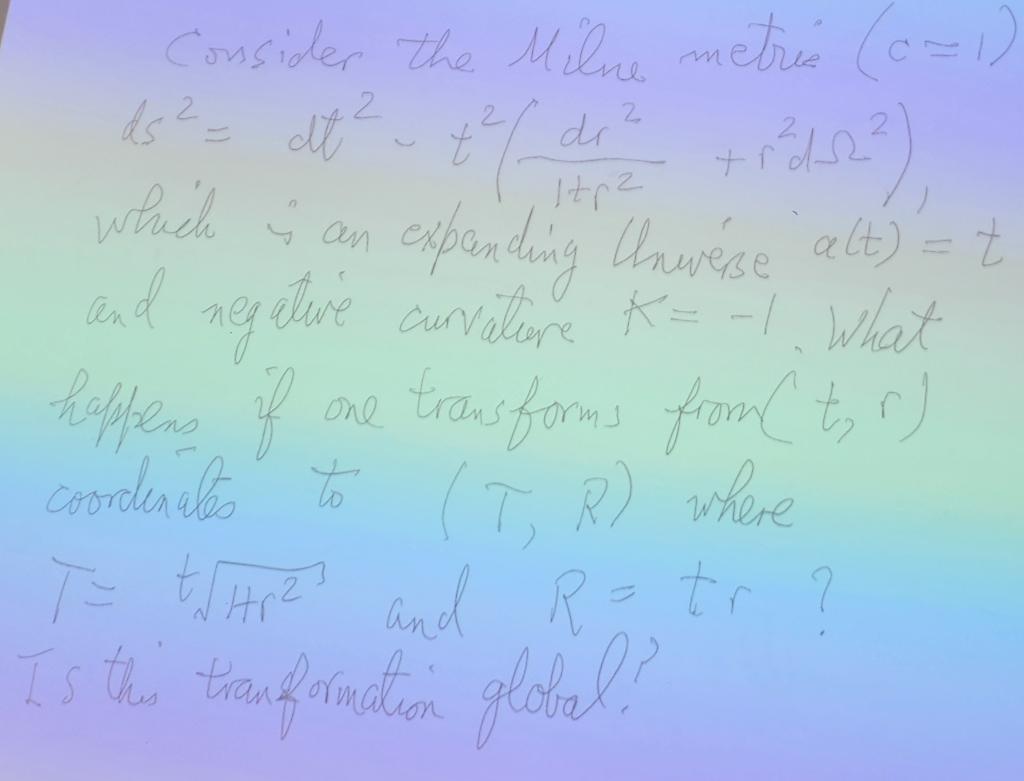 Consider the Milne metric (c = 1)
ds² = dt² - t² ( dr² / 1+r² + r²dΩ² ),
which is an expanding Universe a(t) = t
and negative curvature K = -1. What
happens if one transforms from (t, r)
coordinates to (T, R) where
T = t√1+r² and R = t r ?
Is this transformation global?